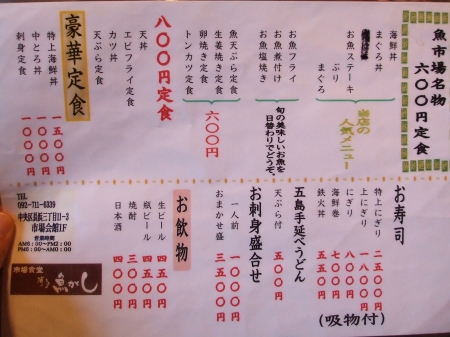 魚市場名物
六〇〇円定食
海鮮丼
まぐろ丼
お魚ステーキ
ぶり
まぐろ
当店の
人気メニュー
お魚フライ
お魚煮付け
お魚塩焼き
旬の美味しいお魚を
日替わりでどうぞ。
魚天ぷら定食
生姜焼き定食
卵焼き定食
トンカツ定食
六〇〇円
八〇〇円定食
天丼
エビフライ定食
カツ丼
天ぷら定食
豪華定食
特上海鮮丼 一五〇〇円
中とろ丼 一〇〇〇円
刺身定食 一〇〇〇円
お寿司
特上にぎり 二五〇〇円
上にぎり 一八〇〇円
にぎり 一〇〇〇円
海鮮巻 七〇〇円
鉄火丼 八五〇円
(吸物付)
五島手延べうどん
天ぷら付 五〇〇円
お刺身盛合せ
一人前 一〇〇〇円
おまかせ盛 三五〇〇円
お飲物
生ビール 四五〇円
瓶ビール 五〇〇円
焼酎 三〇〇円
日本酒 四〇〇円
TEL
092-711-6339
中央区長浜三丁目11-3
市場会館1F
営業時間
AM6:00~PM2:00
PM6:00~AM0:00
市場食堂
魚がし